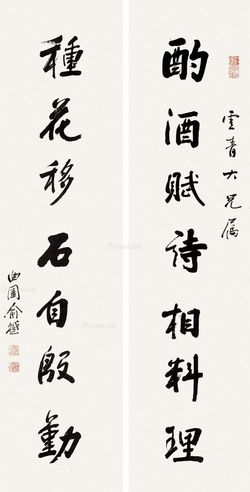 雲青大兄屬
酌酒賦詩相料理
種花移石自殷勤
曲園俞樾